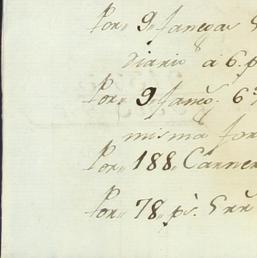 Por 9, fanegas
diario á 6. p
Por 9, faneg. 6
misma for
Por 188, Carner
Por 78, ps.